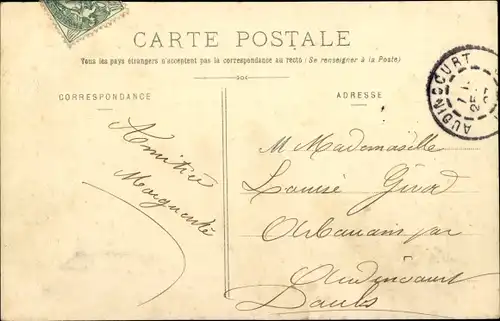 CARTE POSTALE
Tous les pays étrangers n'acceptent pas la correspondance au recto (Se renseigner à la Poste)
CORRESPONDANCE
ADRESSE
AUDINCOURT
Amitiés
Marguerite
M Mademoiselle
Louise Girod
Arbouans par
Audincourt
Doubs